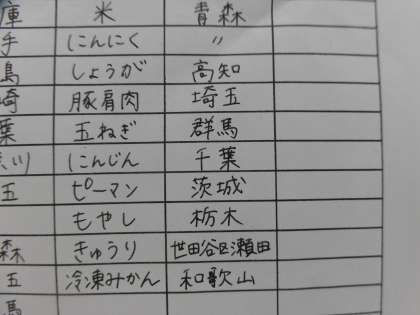 庫 米 青森
手 にんにく 〃
島 しょうが 高知
崎 豚肩肉 埼玉
葉 玉ねぎ 群馬
川 にんじん 千葉
玉 ピーマン 茨城
もやし 栃木
森 きゅうり 世田谷区瀬田
玉 冷凍みかん 和歌山
馬